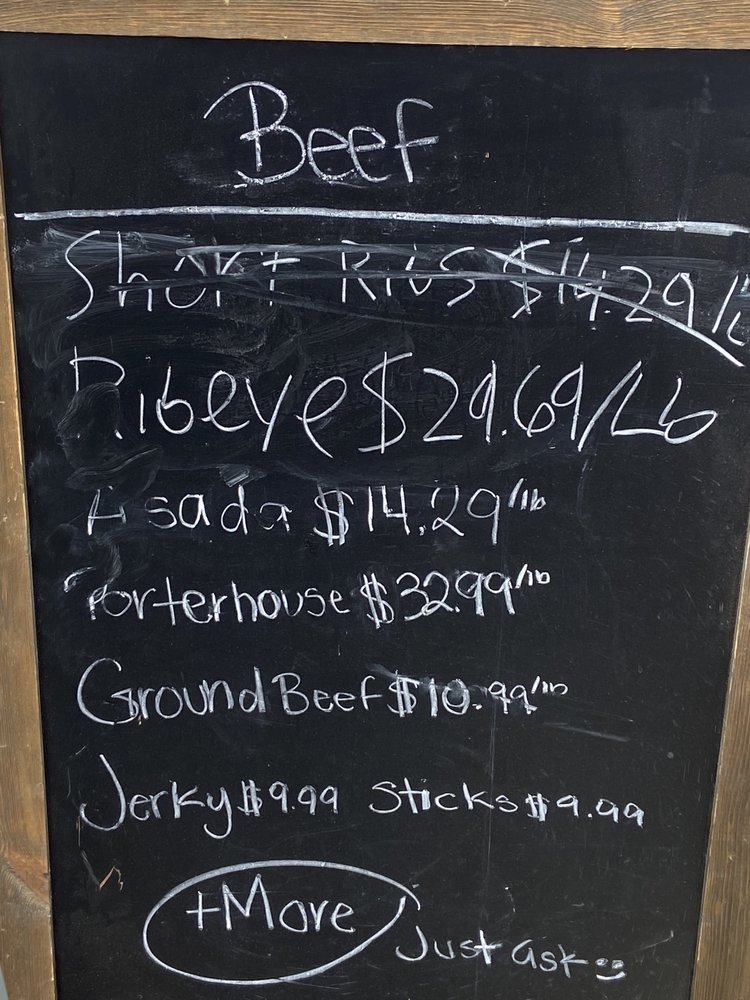 Beef
Short Ribs $14.29/lb
Ribeye $29.69/Lb
Asada $14.29/lb
Porterhouse $32.99/lb
Ground Beef $10.99/lb
Jerky $9.99 Sticks $9.99
+More Just ask